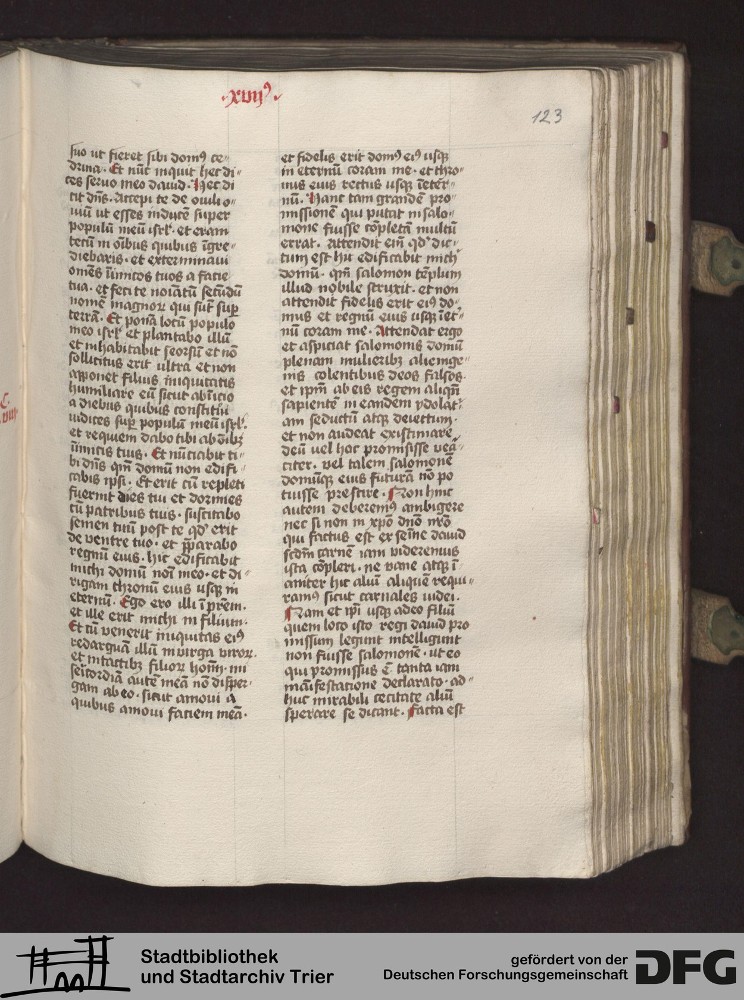 ·xvııꝯ·
123
suo ut fieret sibi domꝰ ce-
drina. Et nu̅c inquit hec di-
ces seruo meo dauid. Hec di
cit dn̅s. Accepi te de ouili o-
uiu̅ ut esses in duce̅ super
populu̅ meu̅ isrl̅. et eram
tecu̅ in o̅ibus quibus i̅gre-
diebaris. et exterminaui
om̅es i̅imicos tuos a facie
tua. et feci te no̅i̅atu̅ secu̅du̅
nome̅ magnoꝝ qui su̅t sup̅
terra̅. Et pona̅ locu̅ populo
meo isrl̅ et plantabo illu̅
et inhabitabit seorsu̅ et no̅
sollicitus erit ultra et non
apponet filius iniquitatis
humiliare eu̅ sicut ab i̅icio
a diebus quibus constitui
iudices sup̅ populu̅ meu̅ isrl̅.
et requiem dabo tibi ab o̅ibꝫ
i̅imicis tuis. Et nu̅ciabit ti-
bi dn̅s qm̅ domu̅ non edifi-
cabis ipsi. Et erit cu̅ repleti
fuerint dies tui et dormies
cu̅ patribus tuis. suscitabo
semen tuu̅ post te qd̕ erit
de ventre tuo. et p̅parabo
regnu̅ eius. hic edificabit
michi domu̅ no̅i meo. et di-
rigam thronu̅ eius usqꝫ in
eternu̅. Ego ero illi i̅ p̅rem.
et ille erit michi in filium.
Et cu̅ venerit iniquitas eiꝰ
redargua̅ illu̅ in virga viroꝝ.
et in tactibꝫ filioꝝ hom̅. mi
sericordia̅ aute̅ mea̅ no̅ disper-
gam ab eo. sicut amoui a
quibus amoui faciem mea̅.
et fidelis erit domꝰ eiꝰ usqꝫ
in eternu̅ coram me. et thro-
nus eius rectus usqꝫ i̅eter-
nu̅. Hanc tam grande̅ pro-
missione̅ qui putat in salo-
mone fuisse co̅pleta̅ multu̅
errat. Attendit eni̅ qd̕ dic-
tum est hic edificabit mich̕
domu̅. qm̅ salomon te̅plum
illud nobile struxit. et non
attendit fidelis erit eiꝰ do-
mus et regnu̅ eius usqꝫ i̅et-
nu̅ coram me. Attendat ergo
et aspiciat salomonis domu̅
plenam mulieribꝫ alienige-
nis colentibus deos falsos.
et ip̅m ab eis regem aliqn̅
sapiente̅ in eandem ydolat̕
am seductu̅ atqꝫ deiectum.
et non audeat existimare
deu̅ vel hoc promisisse me̅-
citer. vel talem salomone̅
domu̅qꝫ eius futura̅ no̅ po
tuisse prescire. Non hinc
autem deberemꝰ ambigere
nec si non in xp̅o dn̅o nr̅o
qui factus est ex se̅ine dauid
scd̅m carne̅ iam videremus
ista co̅pleri. ne vane atqꝫ i̅
aniter hic aliu̅ alique̅ requi-
ramꝰ sicut carnales iudei.
Nam et ip̅i usqꝫ adeo filiu̅
quem loco isto regi dauid pro
missum legunt intelligunt
non fuisse salomone̅. ut eo
qui promissus e̅ tanta iam
ma̅ifestatione declarato. ad-
huc mirabili cecitate aliu̅
sperare se dicant. Facta est
Stadtbibliothek
und Stadtarchiv Trier
gefördert von der
Deutschen Forschungsgemeinschaft
DFG